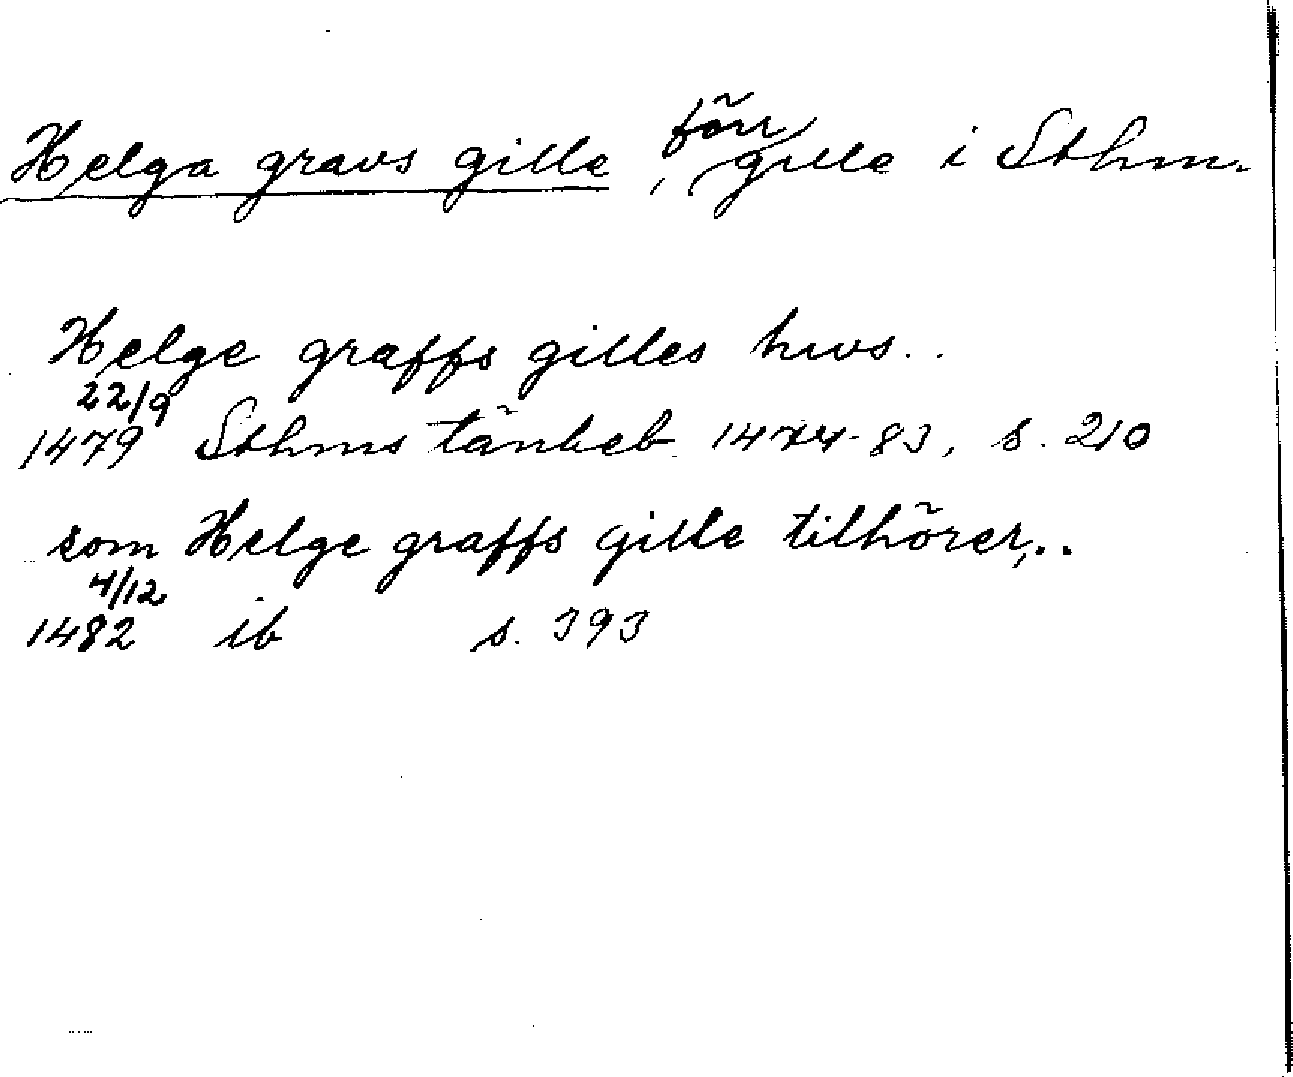 Helga gravs gille, förr gille i Sthm.
Helge graffs gilles hws..
22/9
1479 Sthms tänkeb 1474-83, s. 210
som Helge graffs gille tilhörer,..
4/12
1482 ib s. 393